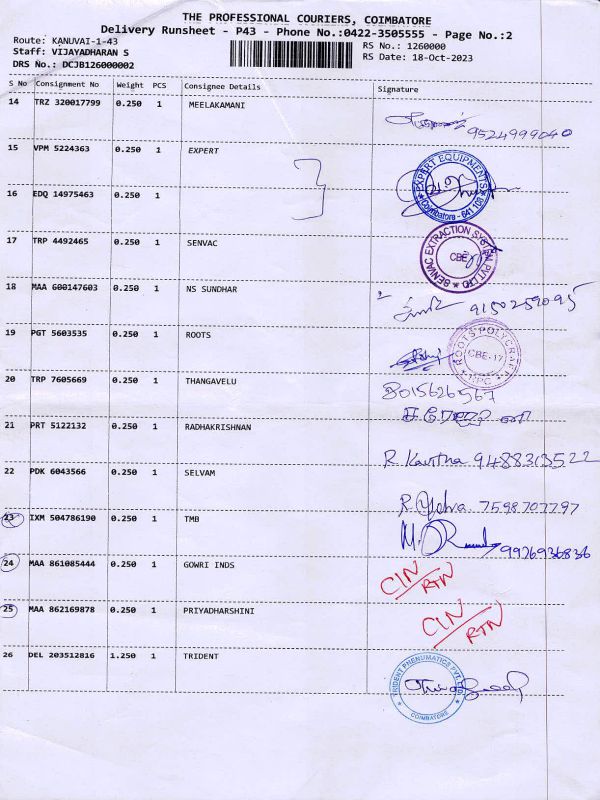 THE PROFESSIONAL COURIERS, COIMBATORE
Delivery Runsheet - P43 - Phone No.:0422-3505555 - Page No.:2
Route: KANUVAI-1-43
RS No.: 1260000
Staff: VIJAYADHARAN S
RS Date: 18-Oct-2023
DRS No.: DCJB126000002
S No Consignment No Weight PCS Consignee Details Signature
14 TRZ 320017799 0.250 1 MEELAKAMANI
9524999040
15 VPM 5224363 0.250 1 EXPERT
EXPERT EQUIPMENTS
Coimbatore - 641 103
16 EDQ 14975463 0.250 1
17 TRP 4492465 0.250 1 SENVAC
SENVAC EXTRACTION SYSTEM PVT LTD
CBE
18 MAA 600147603 0.250 1 NS SUNDHAR
9150259095
19 PGT 5603535 0.250 1 ROOTS
ROOTS POLYCRAFT
CBE-17
RPC
20 TRP 7605669 0.250 1 THANGAVELU
8015626567
21 PRT 5122132 0.250 1 RADHAKRISHNAN
R Kavitha 9488313522
22 PDK 6043566 0.250 1 SELVAM
7598707797
23 IXM 504786190 0.250 1 TMB
9926936836
24 MAA 861085444 0.250 1 GOWRI INDS
CIN/RTN
25 MAA 862169878 0.250 1 PRIYADHARSHINI
CIN/RTN
26 DEL 203512816 1.250 1 TRIDENT
TRIDENT PNEUMATICS PVT. LTD
COIMBATORE